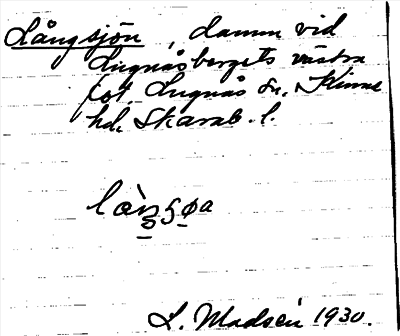 Långsjön, damm vid
Lugnåsbergets västra
fot. Lugnås sn, Kinne
hd, Skarab. l.
L. Madsén 1930.